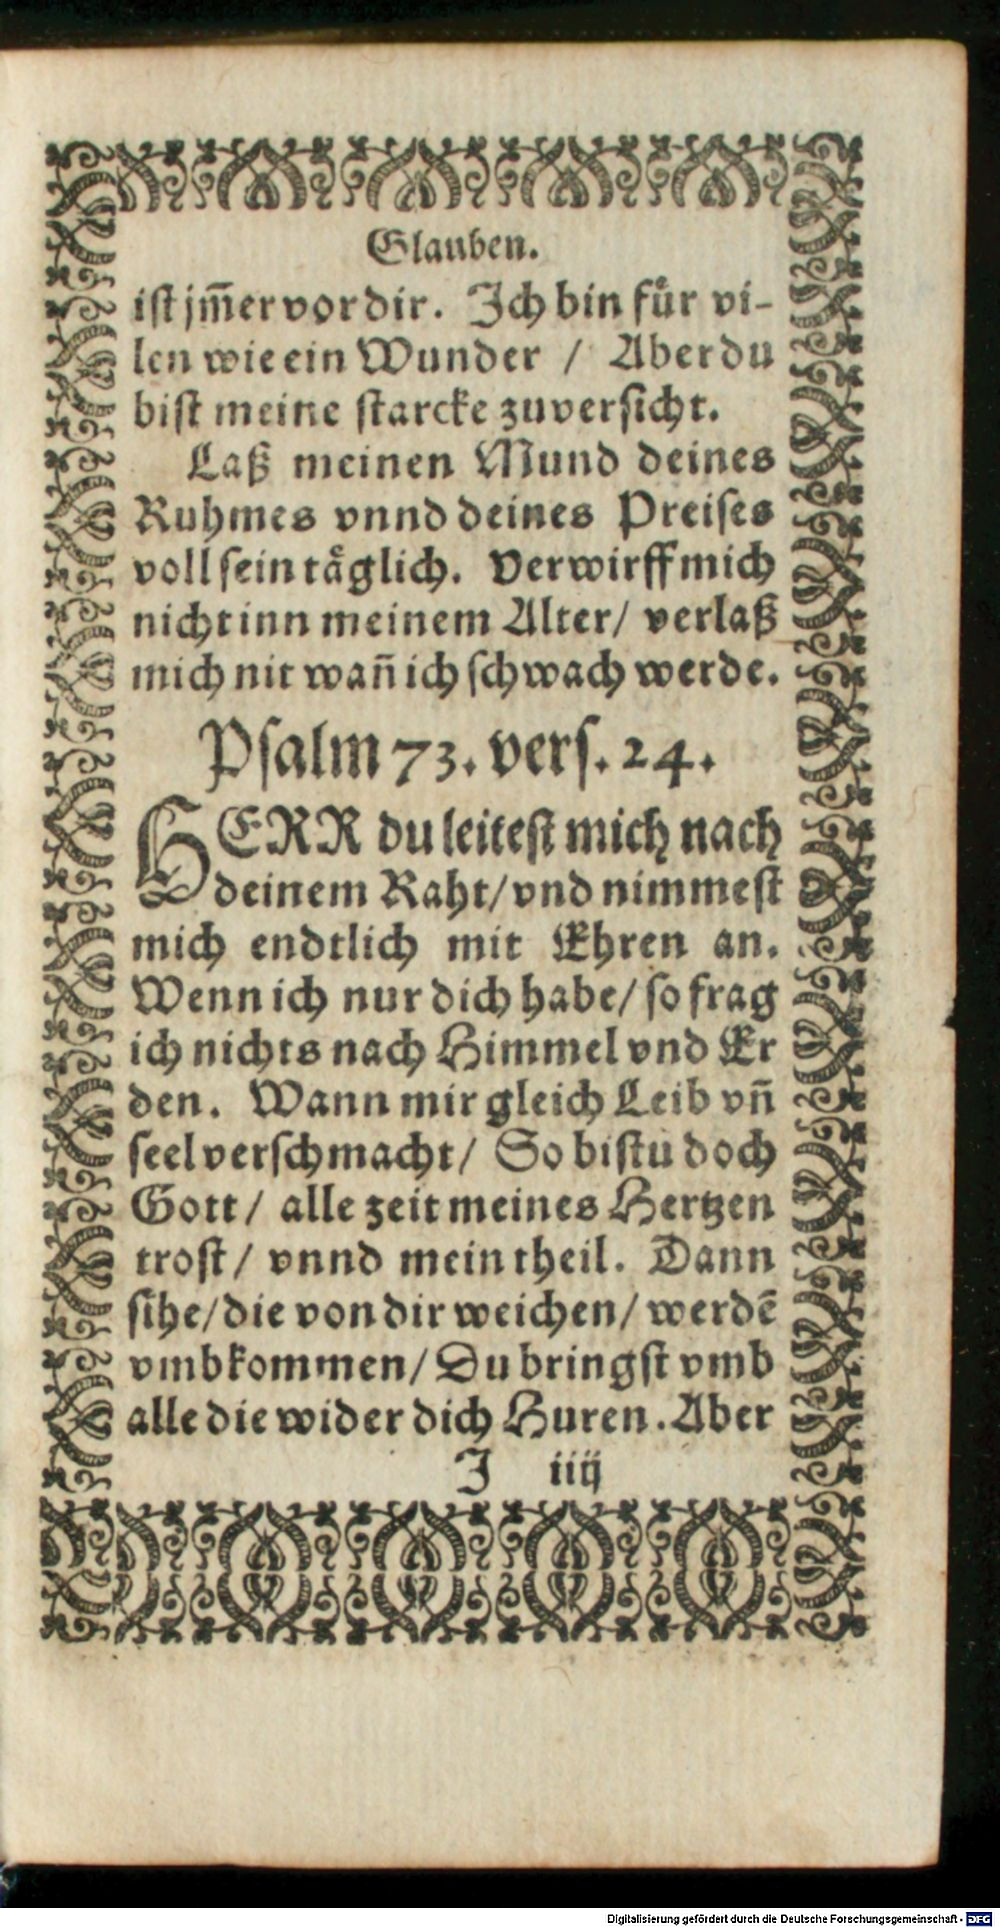 Glauben.
ist jm̃er vor dir. Ich bin fuͤr vi-
len wie ein Wunder / Aber du
bist meine starcke zuversicht.
Laß meinen Mund deines
Ruhmes vnnd deines Preises
voll sein taͤglich. Verwirff mich
nicht inn meinem Alter/ verlaß
mich nit wañ ich schwach werde.
Psalm 73. vers. 24.
HERR du leitest mich nach
deinem Raht/ vnd nimmest
mich endtlich mit Ehren an.
Wenn ich nur dich habe/ so frag
ich nichts nach Himmel vnd Er
den. Wann mir gleich Leib vñ
seel verschmacht/ So bistu doch
Gott/ alle zeit meines Hertzen
trost/ vnnd mein theil. Dann
sihe/ die von dir weichen/ werdẽ
vmbkommen/ Du bringst vmb
alle die wider dich Huren. Aber
J iiij
Digitalisierung gefördert durch die Deutsche Forschungsgemeinschaft - DFG